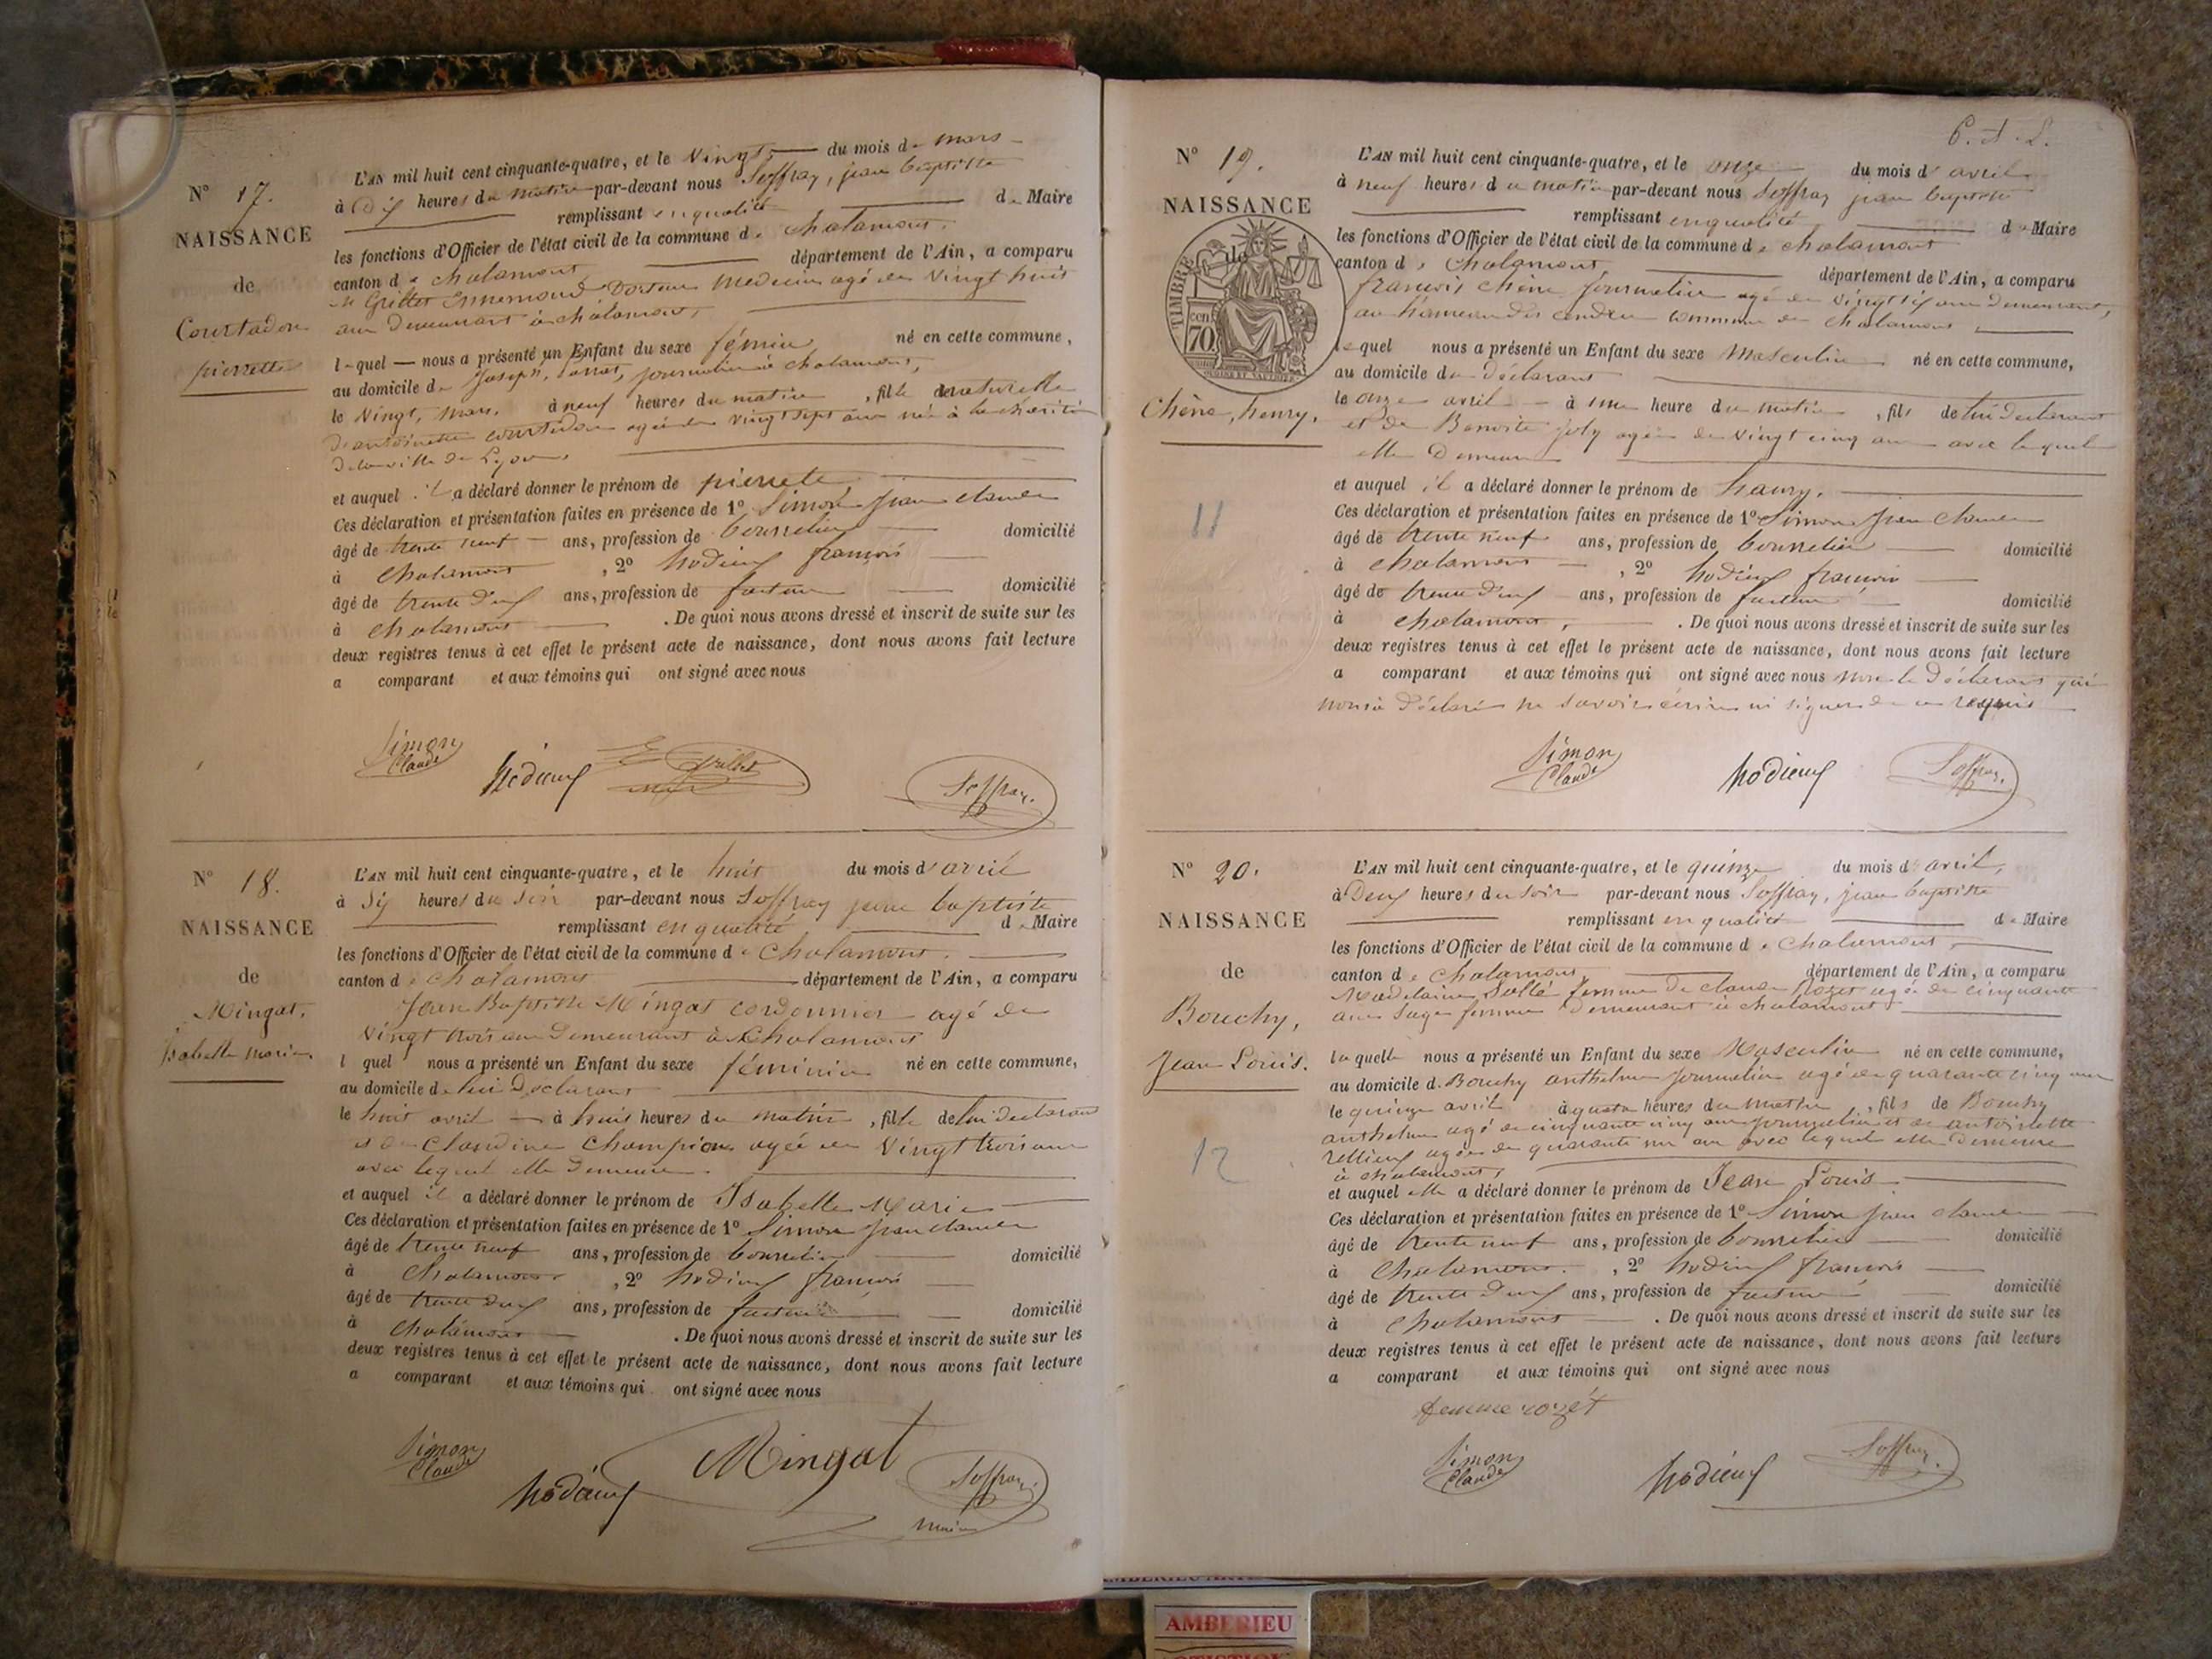 N° 17.
NAISSANCE
de
Courtadon
pierrette
L'AN mil huit cent cinquante-quatre, et le Vingt du mois de mars
à Dix heures du matin par-devant nous Soffray, jean baptiste
remplissant en qualité de Maire
les fonctions d'Officier de l'état civil de la commune de chalamont.
canton de chalamont, département de l'Ain, a comparu
Mr Grillet Ennemond Docteur Medecin agé de Vingt huit
ans Demeurant à chalamont,
lequel nous a présenté un Enfant du sexe féminin né en cette commune,
au domicile de Joseph, journalier à chalamont,
le Vingt, mars, à neuf heures du matin, fille naturelle
D'antoinette courtadon agée de vingt sept ans née à la charité
De la ville de Lyon,
et auquel il a déclaré donner le prénom de pierrette
Ces déclaration et présentation faites en présence de 1° Simon jean claude
âgé de trente neuf ans, profession de bourrelier domicilié
à chalamont, 2° hodieux françois
âgé de trente deux ans, profession de facteur domicilié
à chalamont. De quoi nous avons dressé et inscrit de suite sur les
deux registres tenus à cet effet le présent acte de naissance, dont nous avons fait lecture
a comparant et aux témoins qui ont signé avec nous
Simon
Claude
hodieux
E Grillet
Soffray.
N° 18.
NAISSANCE
de
Mingat.
Isabelle marie
L'AN mil huit cent cinquante-quatre, et le huit du mois d'avril
à Six heures du soir par-devant nous Soffray jean baptiste
remplissant en qualité de Maire
les fonctions d'Officier de l'état civil de la commune de Chalamont.
canton de chalamont département de l'Ain, a comparu
Jean Baptiste Mingat cordonnier agé de
Vingt trois ans Demeurant à Chalamont
l quel nous a présenté un Enfant du sexe féminin né en cette commune,
au domicile de lui Declarant
le huit avril à huit heures du matin, fille de lui declarant
et de Claudine Champion agée de Vingt trois ans
avec lequel elle Demeure.
et auquel il a déclaré donner le prénom de Isabelle Marie
Ces déclaration et présentation faites en présence de 1° Simon jean claude
âgé de trente neuf ans, profession de bourrelier domicilié
à Chalamont, 2° hodieux françois
âgé de trente deux ans, profession de facteur domicilié
à chalamont. De quoi nous avons dressé et inscrit de suite sur les
deux registres tenus à cet effet le présent acte de naissance, dont nous avons fait lecture
a comparant et aux témoins qui ont signé avec nous
Simon
Claude
hodieux
Mingat
Soffray.
maire
N° 19.
NAISSANCE
de
TIMBRE
cen
70
Chêne, henry.
11
L'AN mil huit cent cinquante-quatre, et le onze du mois d'avril
à neuf heures du matin par-devant nous Soffray jean baptiste
remplissant en qualité de Maire
les fonctions d'Officier de l'état civil de la commune de chalamont
canton de Chalamont, département de l'Ain, a comparu
françois chêne journalier agé de vingt six ans demeurant,
au hameau des commune de chalamont
lequel nous a présenté un Enfant du sexe Masculin né en cette commune,
au domicile du Déclarant
le onze avril à une heure du matin, fils de lui declarant
et de Benoite joly agée de vingt cinq ans avec lequel
elle Demeure
et auquel il a déclaré donner le prénom de haury.
Ces déclaration et présentation faites en présence de 1° Simon jean claude
âgé de trente neuf ans, profession de bourrelier domicilié
à chalamont, 2° hodieux françois
âgé de trente deux ans, profession de facteur domicilié
à chalamont,. De quoi nous avons dressé et inscrit de suite sur les
deux registres tenus à cet effet le présent acte de naissance, dont nous avons fait lecture
a comparant et aux témoins qui ont signé avec nous non le Déclarant qui
nous a déclaré ne savoir écrire ni signer de ce requis
Simon
Claude
hodieux
Soffray.
N° 20.
NAISSANCE
de
Bouchy,
Jean Louis.
12
L'AN mil huit cent cinquante-quatre, et le quinze du mois d'avril,
à Deux heures du soir par-devant nous Soffray, jean baptiste
remplissant en qualité de Maire
les fonctions d'Officier de l'état civil de la commune de chalamont,
canton de Chalamont, département de l'Ain, a comparu
Madelaine femme De claude Rozet agée de cinquante
ans Sage femme Demeurant à chalamont
laquelle nous a présenté un Enfant du sexe Masculin né en cette commune,
au domicile d. Bouchy anthelme journalier agé de quarante cinq ans
le quinze avril à quatre heures du matin, fils de Bouchy
anthelme agé de cinquante cinq ans journalier et de antoinette
agée de quarante un ans avec lequel elle Demeure
à chalamont,
et auquel elle a déclaré donner le prénom de Jean Louis
Ces déclaration et présentation faites en présence de 1° Simon jean claude
âgé de trente neuf ans, profession de bourrelier domicilié
à Chalamont., 2° hodieux françois
âgé de trente deux ans, profession de facteur domicilié
à chalamont. De quoi nous avons dressé et inscrit de suite sur les
deux registres tenus à cet effet le présent acte de naissance, dont nous avons fait lecture
a comparant et aux témoins qui ont signé avec nous
femme rozét
Simon
Claude
hodieux
Soffray.
AMBERIEU